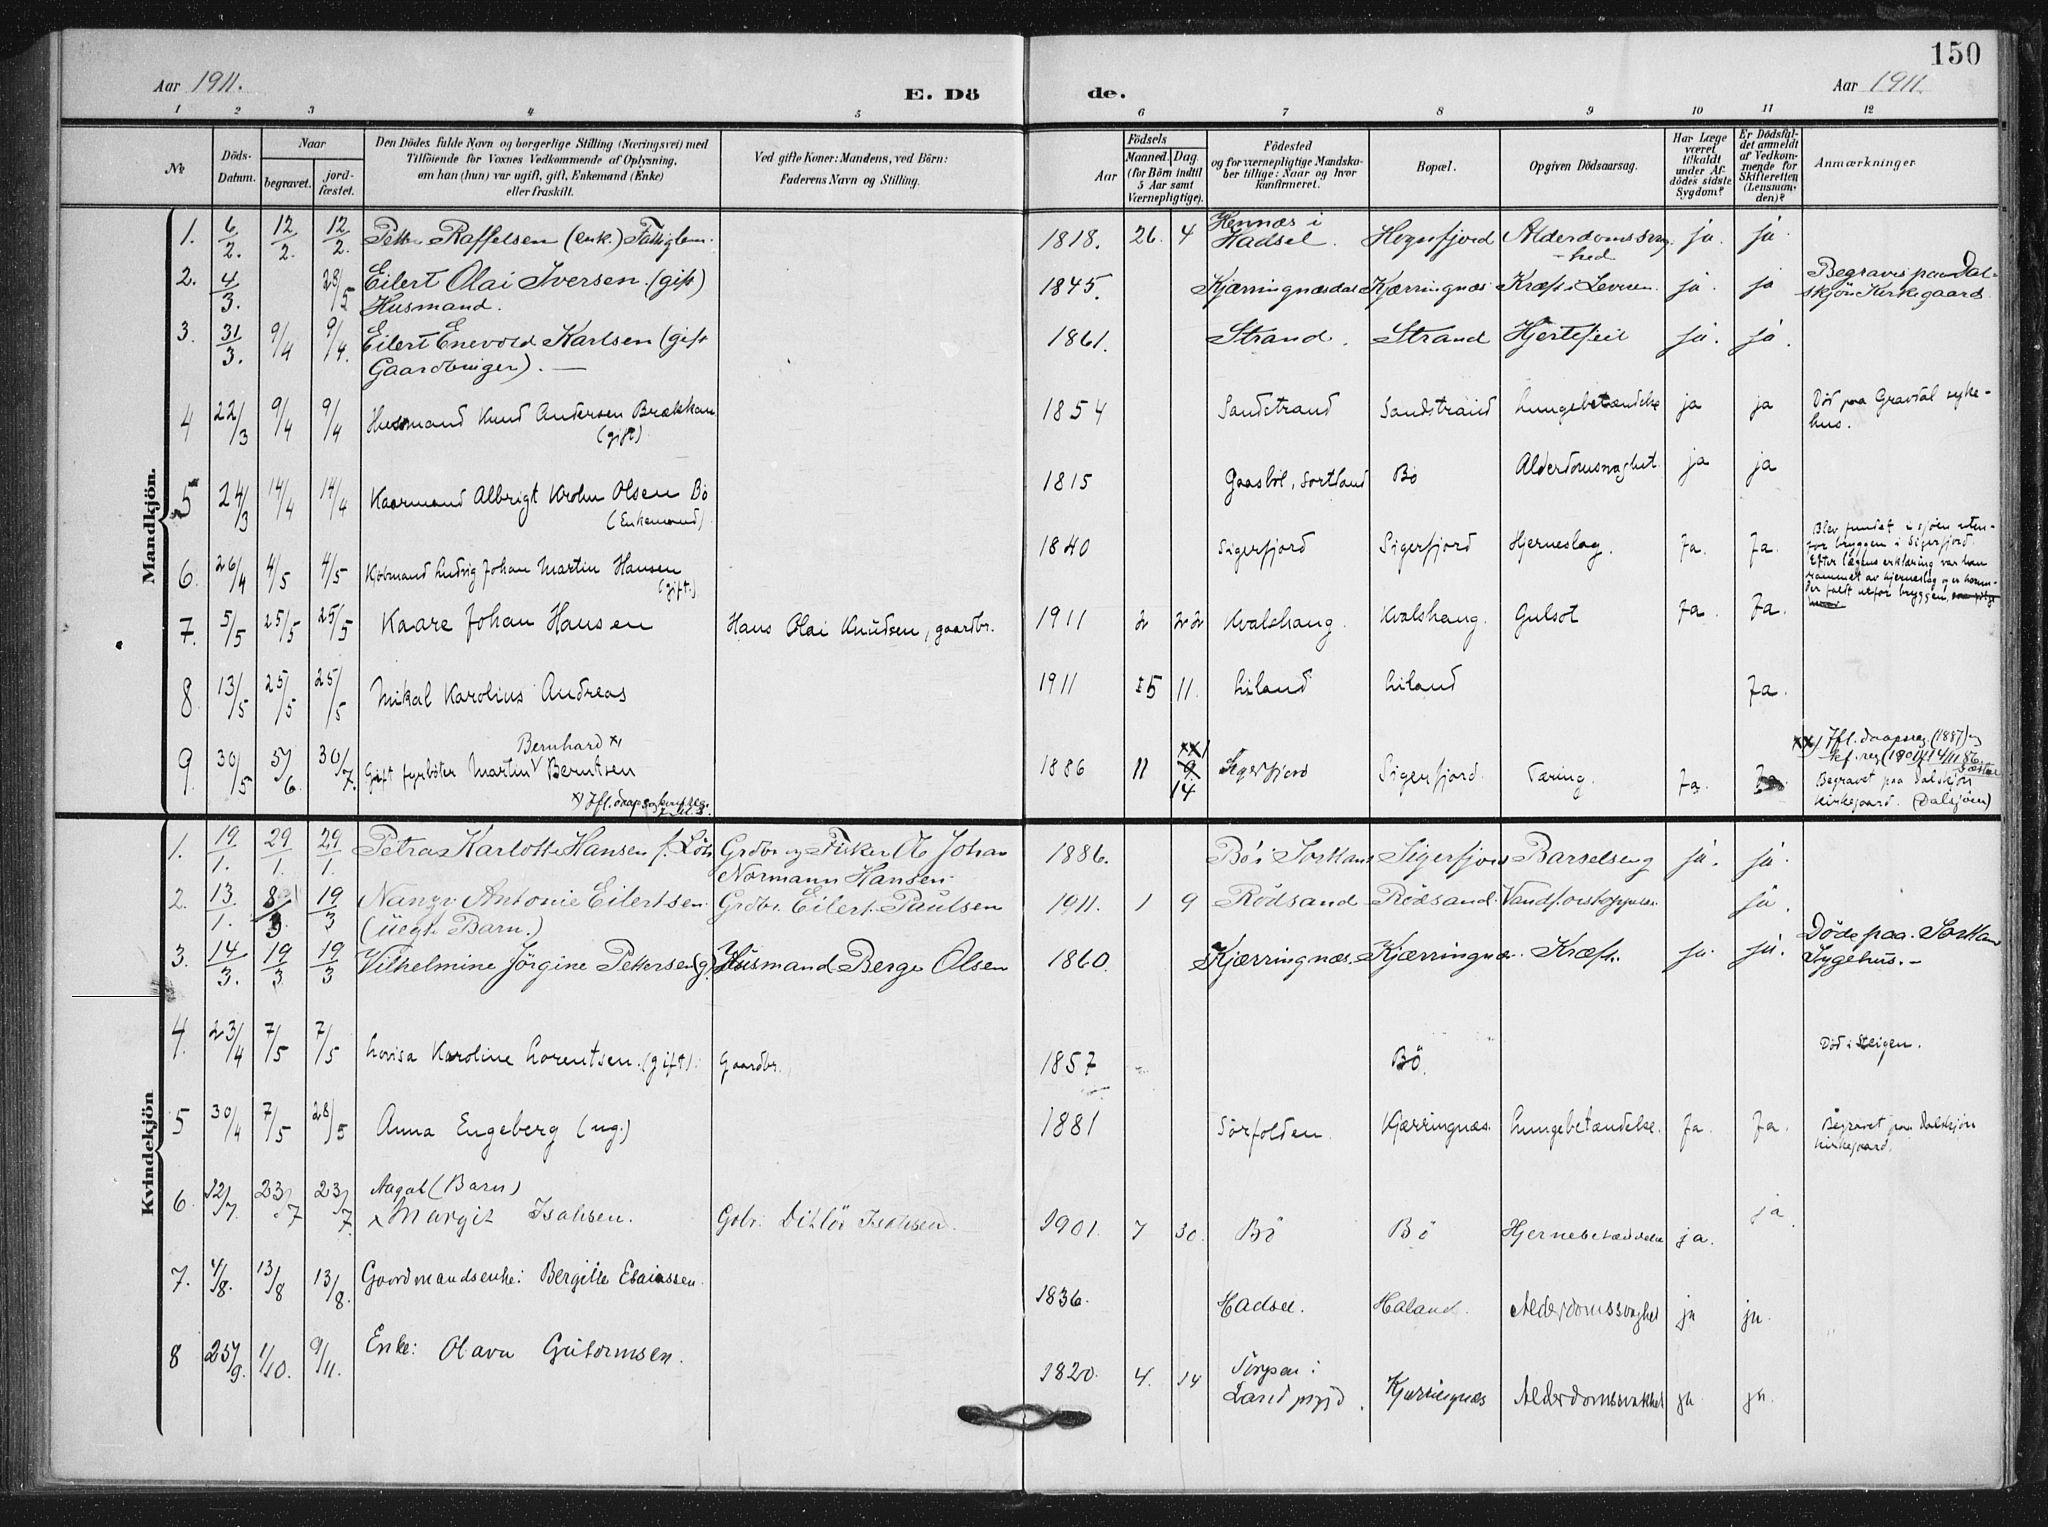 150
Aar 1911.
E. Dö de.
Aar 1911.
1 2 3 4 5 6 7 8 9 10 11 12
№
Döds-Datum.
Naar
begravet.
jord-fæstet.
Den Dödes fulde Navn og borgerlige Stilling (Næringsvei) med
Tilföiende for Voxnes Vedkommende af Oplysning,
om han (hun) var ugift, gift, Enkemand (Enke)
eller fraskilt.
Ved gifte Koner: Mandens, ved Börn:
Faderens Navn og Stilling.
Födsels
Aar
Maaned. Dag
(for Börn indtil
5 Aar samt
Værnepligtige).
Födested
og for værnepligtige Mandska-
ber tillige: Naar og hvor
konfirmeret.
Bopæl.
Opgiven Dödsaarsag.
Har Læge
været
tilkaldt
under Af-
dödes sidste
Sygdom?
Er Dödsfal-
det anmeldt
af Vedkom-
mende for
Skifteretten
(Lensman-
den)?
Anmærkninger.
Mandkjön.
1. 6/2. 12/2. 12/2. Petter Raffelsen (enk.) Fattiglem. 1818. 26. 4 Hennæs i Hadsel. Hognfjord Alderdomssvaghed ja. ja.
2. 4/3. 28/5 Eilert Olai Iversen (gift) Husmand. 1845. Kjærringnæsdal Kjærringnæs Kræft i Leveren. ja. ja Begravet paa Dalskjön Kirkegaard.
3. 31/3. 9/4 9/4. Eilert Enevold Karlsen (gift Gaardbruger). — 1861. Strand. Strand Hjertefeil ja. ja.
4 22/3 9/4 9/4 Husmand Knud Andersen Brækkan (gift) 1854 Sandstrand Sandstrand Lungebetændelse ja ja Död paa Gravdal sykehus.
5 24/3 14/4 14/4 Kaarmand Albrigt Krohn Olsen Bö (Enkemand) 1815 Gaasböl, Sortland Bö Alderdomsvaghet ja ja
6. 26/4 4/5 4/5 Kjöbmand Ludvig Johan Martin Hansen (gift.) 1840 Sigerfjord Sigerfjord Hjerneslag. Ja. Ja. Blev fundet i sjöen uten-
for bryggen i Sigerfjord.
Efter lægens erklæring var han
rammet av hjerneslag og er herun-
der faldt utfor bryggen,
7. 5/5 25/5 25/5 Kaare Johan Hansen Hans Olai Knudsen, gaardbr. 1911 2 22 Kvalshaug. Kvalshaug. Gulsot Ja. Ja.
8 13/5 25/5 25/5 Mikal Karolius Andreas 1911 5 11. Liland Liland Ja.
9. 30/5 5/6 30/7. Gift fyrböter Martin Bernhard x) Berntsen 1886 11 9 xx) 14 Sigerfjord Sigerfjord. Tæring. Ja. Ja xx) Ifl. daapsreg (1887) og
kf. reg (1901) 14/11 86.
Begravet paa Dalskjön
kirkegaard. (Dalsjöen)
Kvindekjön
1. 19/1. 29/1. 29/1. Petra Karlotte Hansen f. Grdbr. og Fisker Johan Normann Hansen. 1886. Bö i Sortland Sigerfjord Barselseng ja. ja.
2. 13/1. 8/3 19/3 Nangv Antonie Eilertsen (uegte Barn.) Grdbr. Eilert Paulsen 1911. 1 9 Rödsand Rödsand. Vandforstoppelse ja.
3. 14/3. 19/3 19/3 Vilhelmine Jörgine Pettersen (g) Husmand Berge Olsen 1860. Kjærringnæs. Kjærringnæs. Kræft. ja. ja. Döde paa Sortland Sygehus. —
4. 23/4 7/5 7/5 Lovisa Karoline Lorentsen. (gift). Gaardbr. 1857 Bö. Död i Steigen.
5 30/4 7/5 28/5 Anna Engeberg (ug.) 1881 Sörfolden. Kjærringnæs. Lungebetændelse. Ja. Ja. Begravet paa Dalskjön kirkegaard.
6. 12/7. 23/7 23/7. Aagot (Barn) Margit Isaksen. Gbr. Ditlöv Isaksen. 1901. 7 30. Bö Bö Hjernebetændelse ja. ja.
7. 4/8. 13/8 13/8. Gaardmandsenke: Bergitte Esaiassen. 1836. Hadsel. Haland. Alderdomssvaghet ja ja.
8 25/9. 1/10. 9/11. Enke: Olava Gutormsen. 1820. 4. 14 Torpen i Land Kjærringnæs Alderdomssvakhet ja ja.